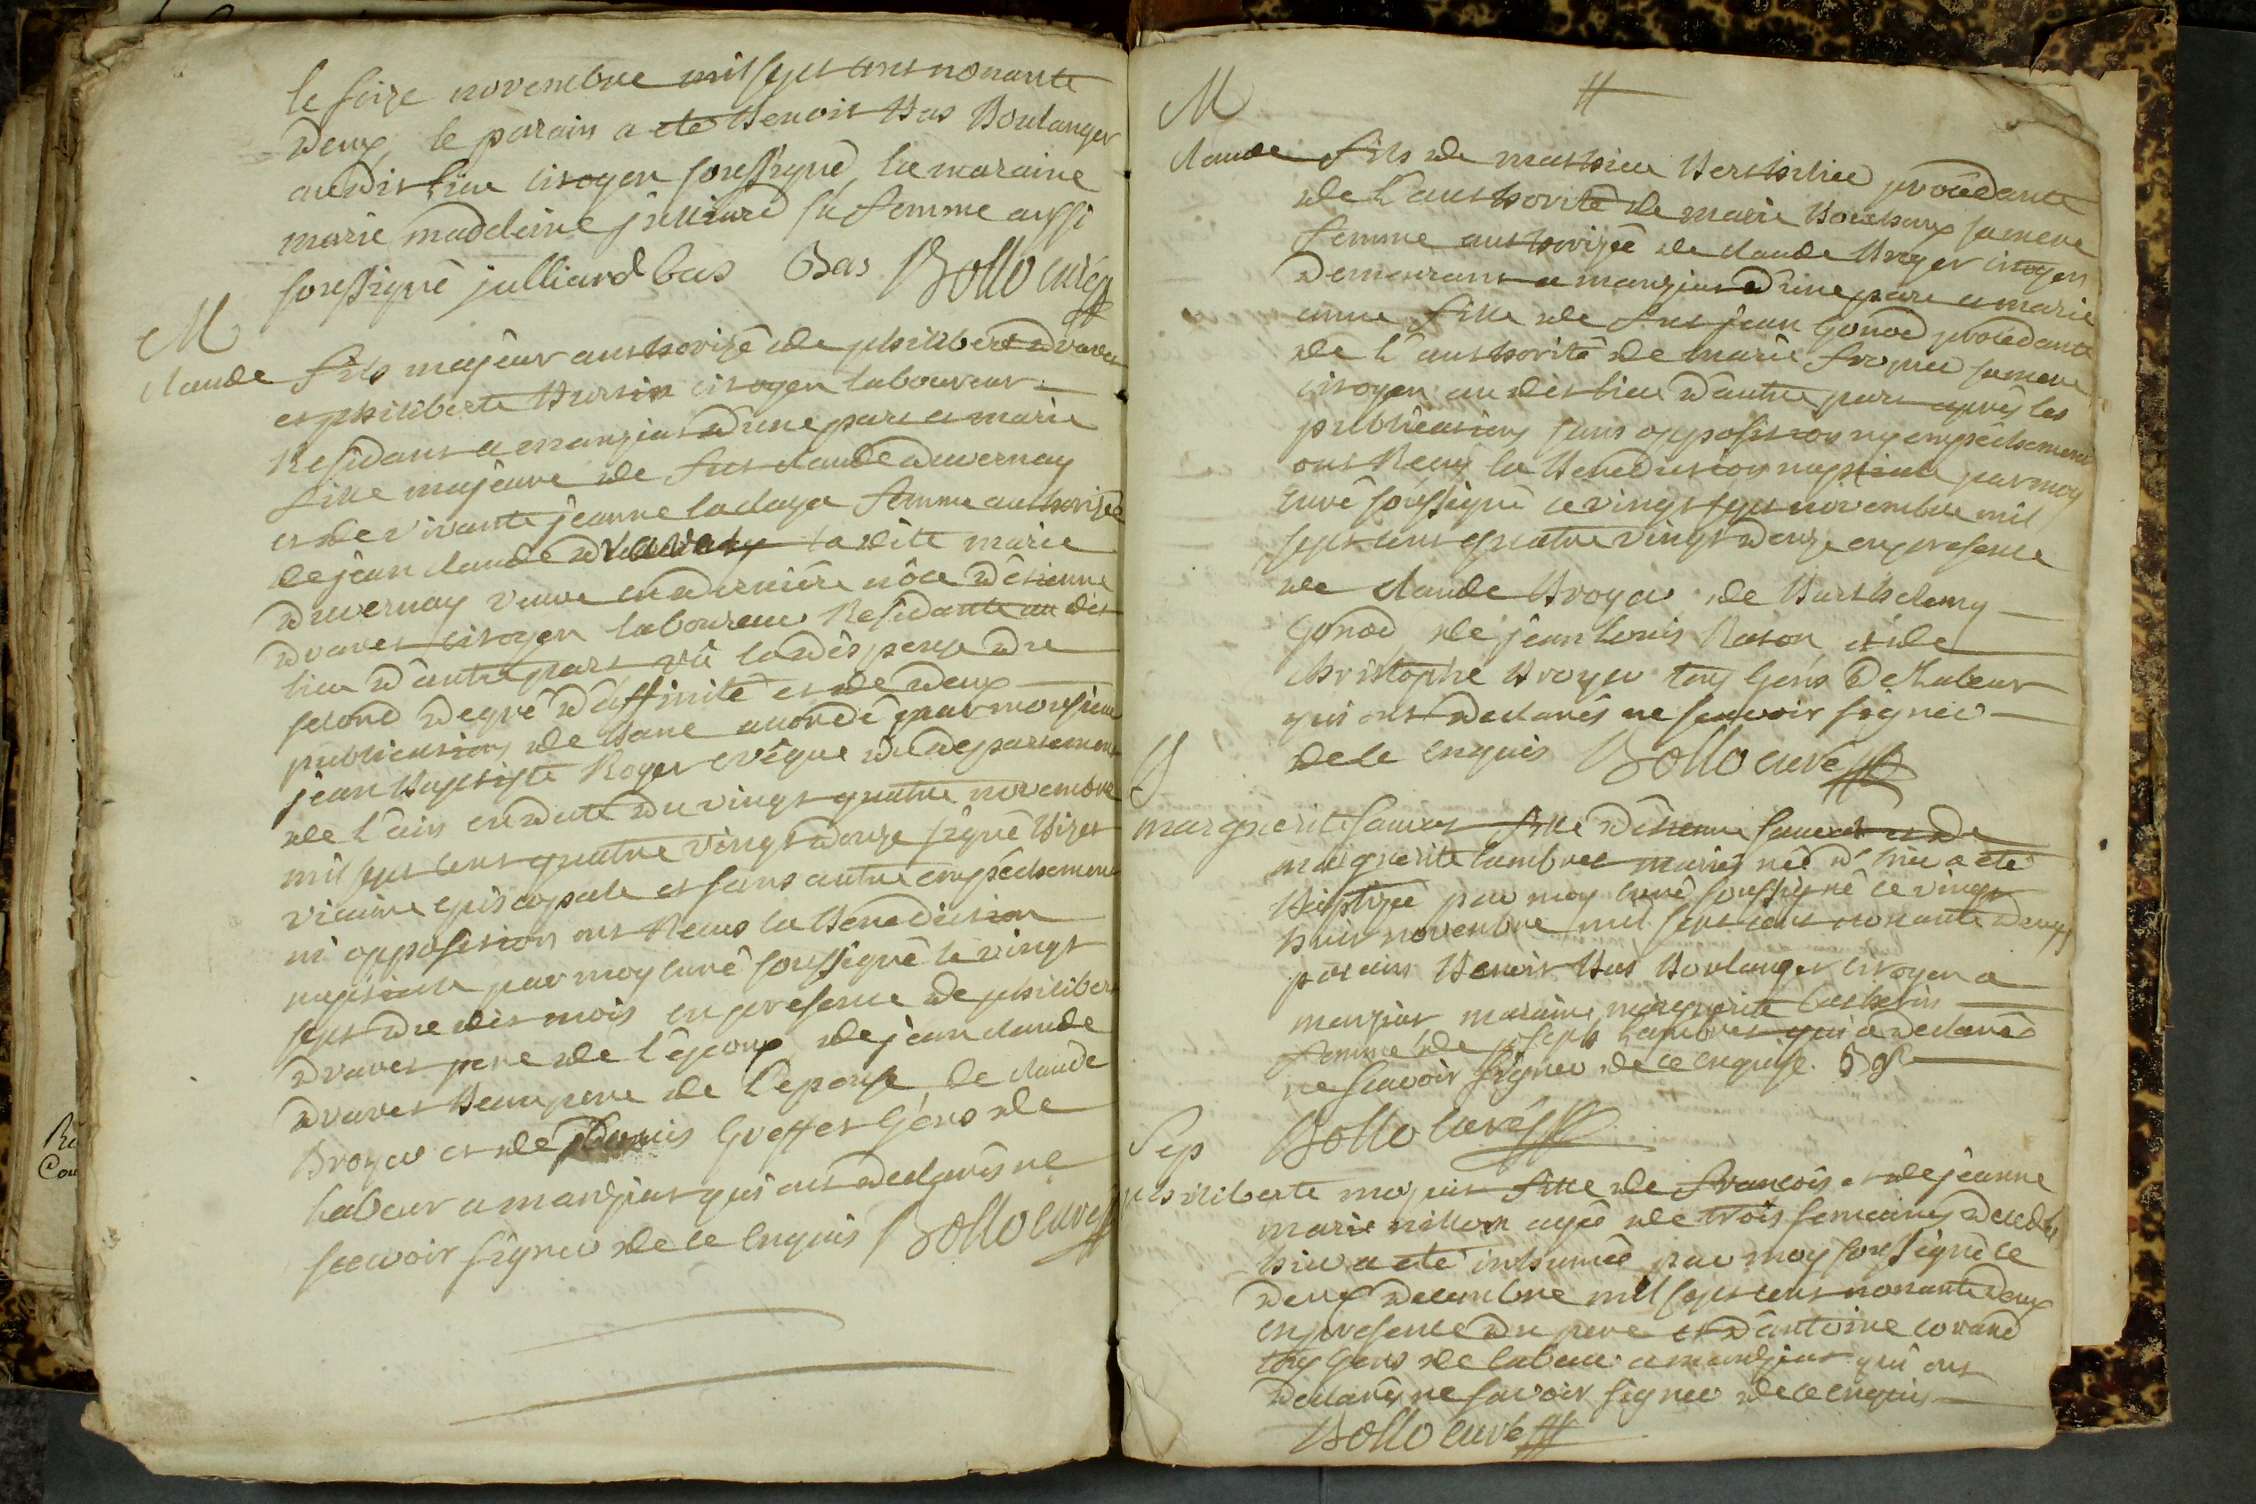 le seize novembre mil sept cent nonante
deux, le parain a eté Benoit Bas Boulanger
audit lieu citoyen soussigné, la maraine
marie madeleine julliard sa femme aussi
soussigné julliard bas Bas Bollo curé
M
claude fils majeur authorizé de philibert dravet
et philiberte Bursin citoyen laboureur
Residant a manziat d'une part et marie
fille majeure de fut claude duvernay
et de vivante jeanne laclaya femme authorizée
de jean claude dravet la dite marie
duvernay veuve en derniére nôce d'étienne
dravet citoyen laboureur Residante au dit
lieu d'autre part vû la dispense du
second degré d'affinité et de deux
publications de bans accordé par monsieur
jean Baptiste Royer evêque du departement
de l'ain en date du vingt quatre novembre
mil sept cent quatre vingt douze signé
vicaire episcopale et sans autre empéchement
ni opposition ont Recus la Benediction
nuptiale par moy curé soussigné le vingt
sept du dit mois en presence de philibert
dravet pere de l'epoux de jean claude
dravet Beaupere de l'epouse de claude
Broyer et de Denis Greffet Géns de
Labeur a manziat qui ont declarés ne
scavoir signer de ce enquis Bollo curé
M
claude fils de mathieu Berthilier procédante
de l'authorité de marie Bouchoux sa mere
femme authorizée de claude Broyer citoyen
Demeurant a manziat d'une part et marie
anne fille de fut jean Gonod procédante
de l'authorité de marie sa mere
citoyen au dit lieu d'autre part après les
publications sans opposition ny empêchement
ont Recus la Benediction nuptiale par moy
curé soussigné ce vingt sept novembre mil
sept cent quatre vingt douze en presence
de claude Broyer de Barthelemy
Gonod de jean louis Raton et de
christophe Broyer tous Géns De Labeur
qui ont declarés ne scavoir signer
de ce enquis Bollo curé
B
marguerite fille d'étienne et de
marguerite lambret mariés née d'hier a eté
Baptizée par moy curé soussigné ce vingt
huit novembre mil sept cent nonante deux
parain Benoit Bas Boulanger citoyen a
manziat maraine marguerite Catherin
femme de joseph Lambret qui a declaré
ne scavoir signer de ce enquise. Bas
Bollo curé
Sep
philiberte moquet fille de françois et de jeanne
marie nillon agée de trois semaines decedée
hier a eté inhumée par moy soussigné ce
deux decembre mil sept cent nonante deux
en presence du pere et d'antoine corand
tous Gens de labeur a manziat qui ont
declarés ne scavoir signer de ce enquis
Bollo curé